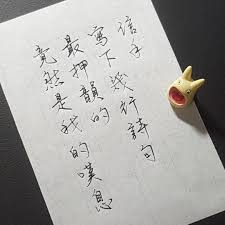 信手
寫下幾行詩句
最押韻的
竟然是我的嘆息